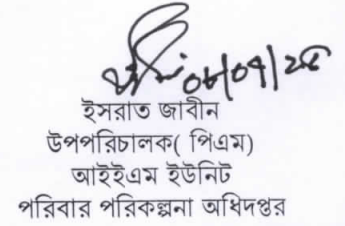 ইসরাত জাবীন
উপপরিচালক( পিএম)
আইইএম ইউনিট
পরিবার পরিকল্পনা অধিদপ্তর